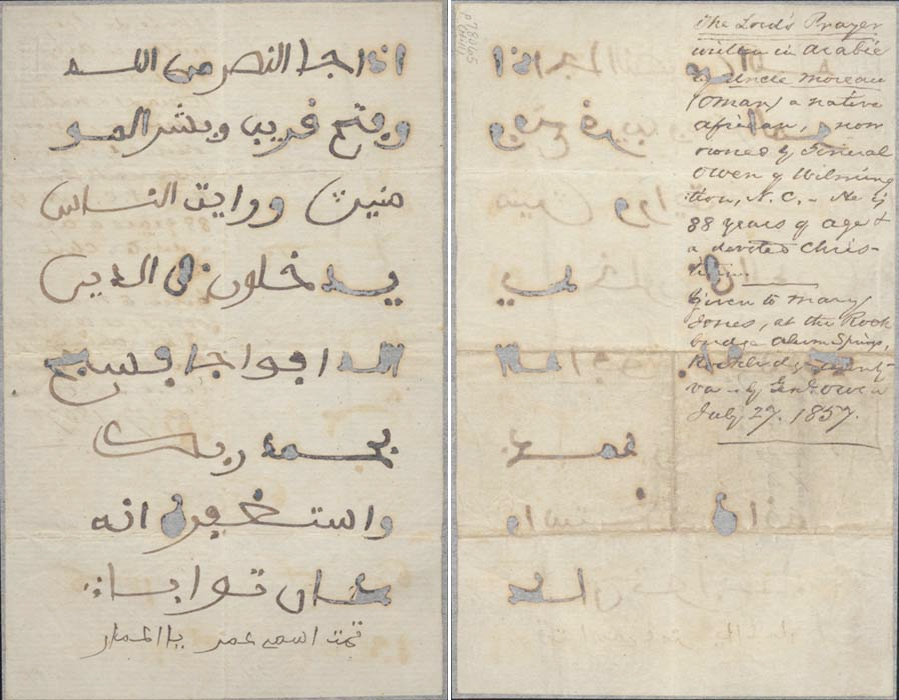 اذا جا النصر من الله
وفتح قريب وبشر المو
منين ورايت الناس
يدخلون في الدين
الله افواجا فسبح
بحمد ربك
واستغفره انه
كان توابا
تمت اسمي عمر
The Lord's Prayer
written in Arabic
by Uncle Moreau
(Omar) a native
African, now
owned by General
Owen of Wilming-
ton, N.C. – He is
88 years of age &
a devoted Chris-
tian.
Given to Mary
Jones, at the Rock
bridge Alum Springs,
Rockbridge County
Va – by Gen Owen
July 27. 1857.